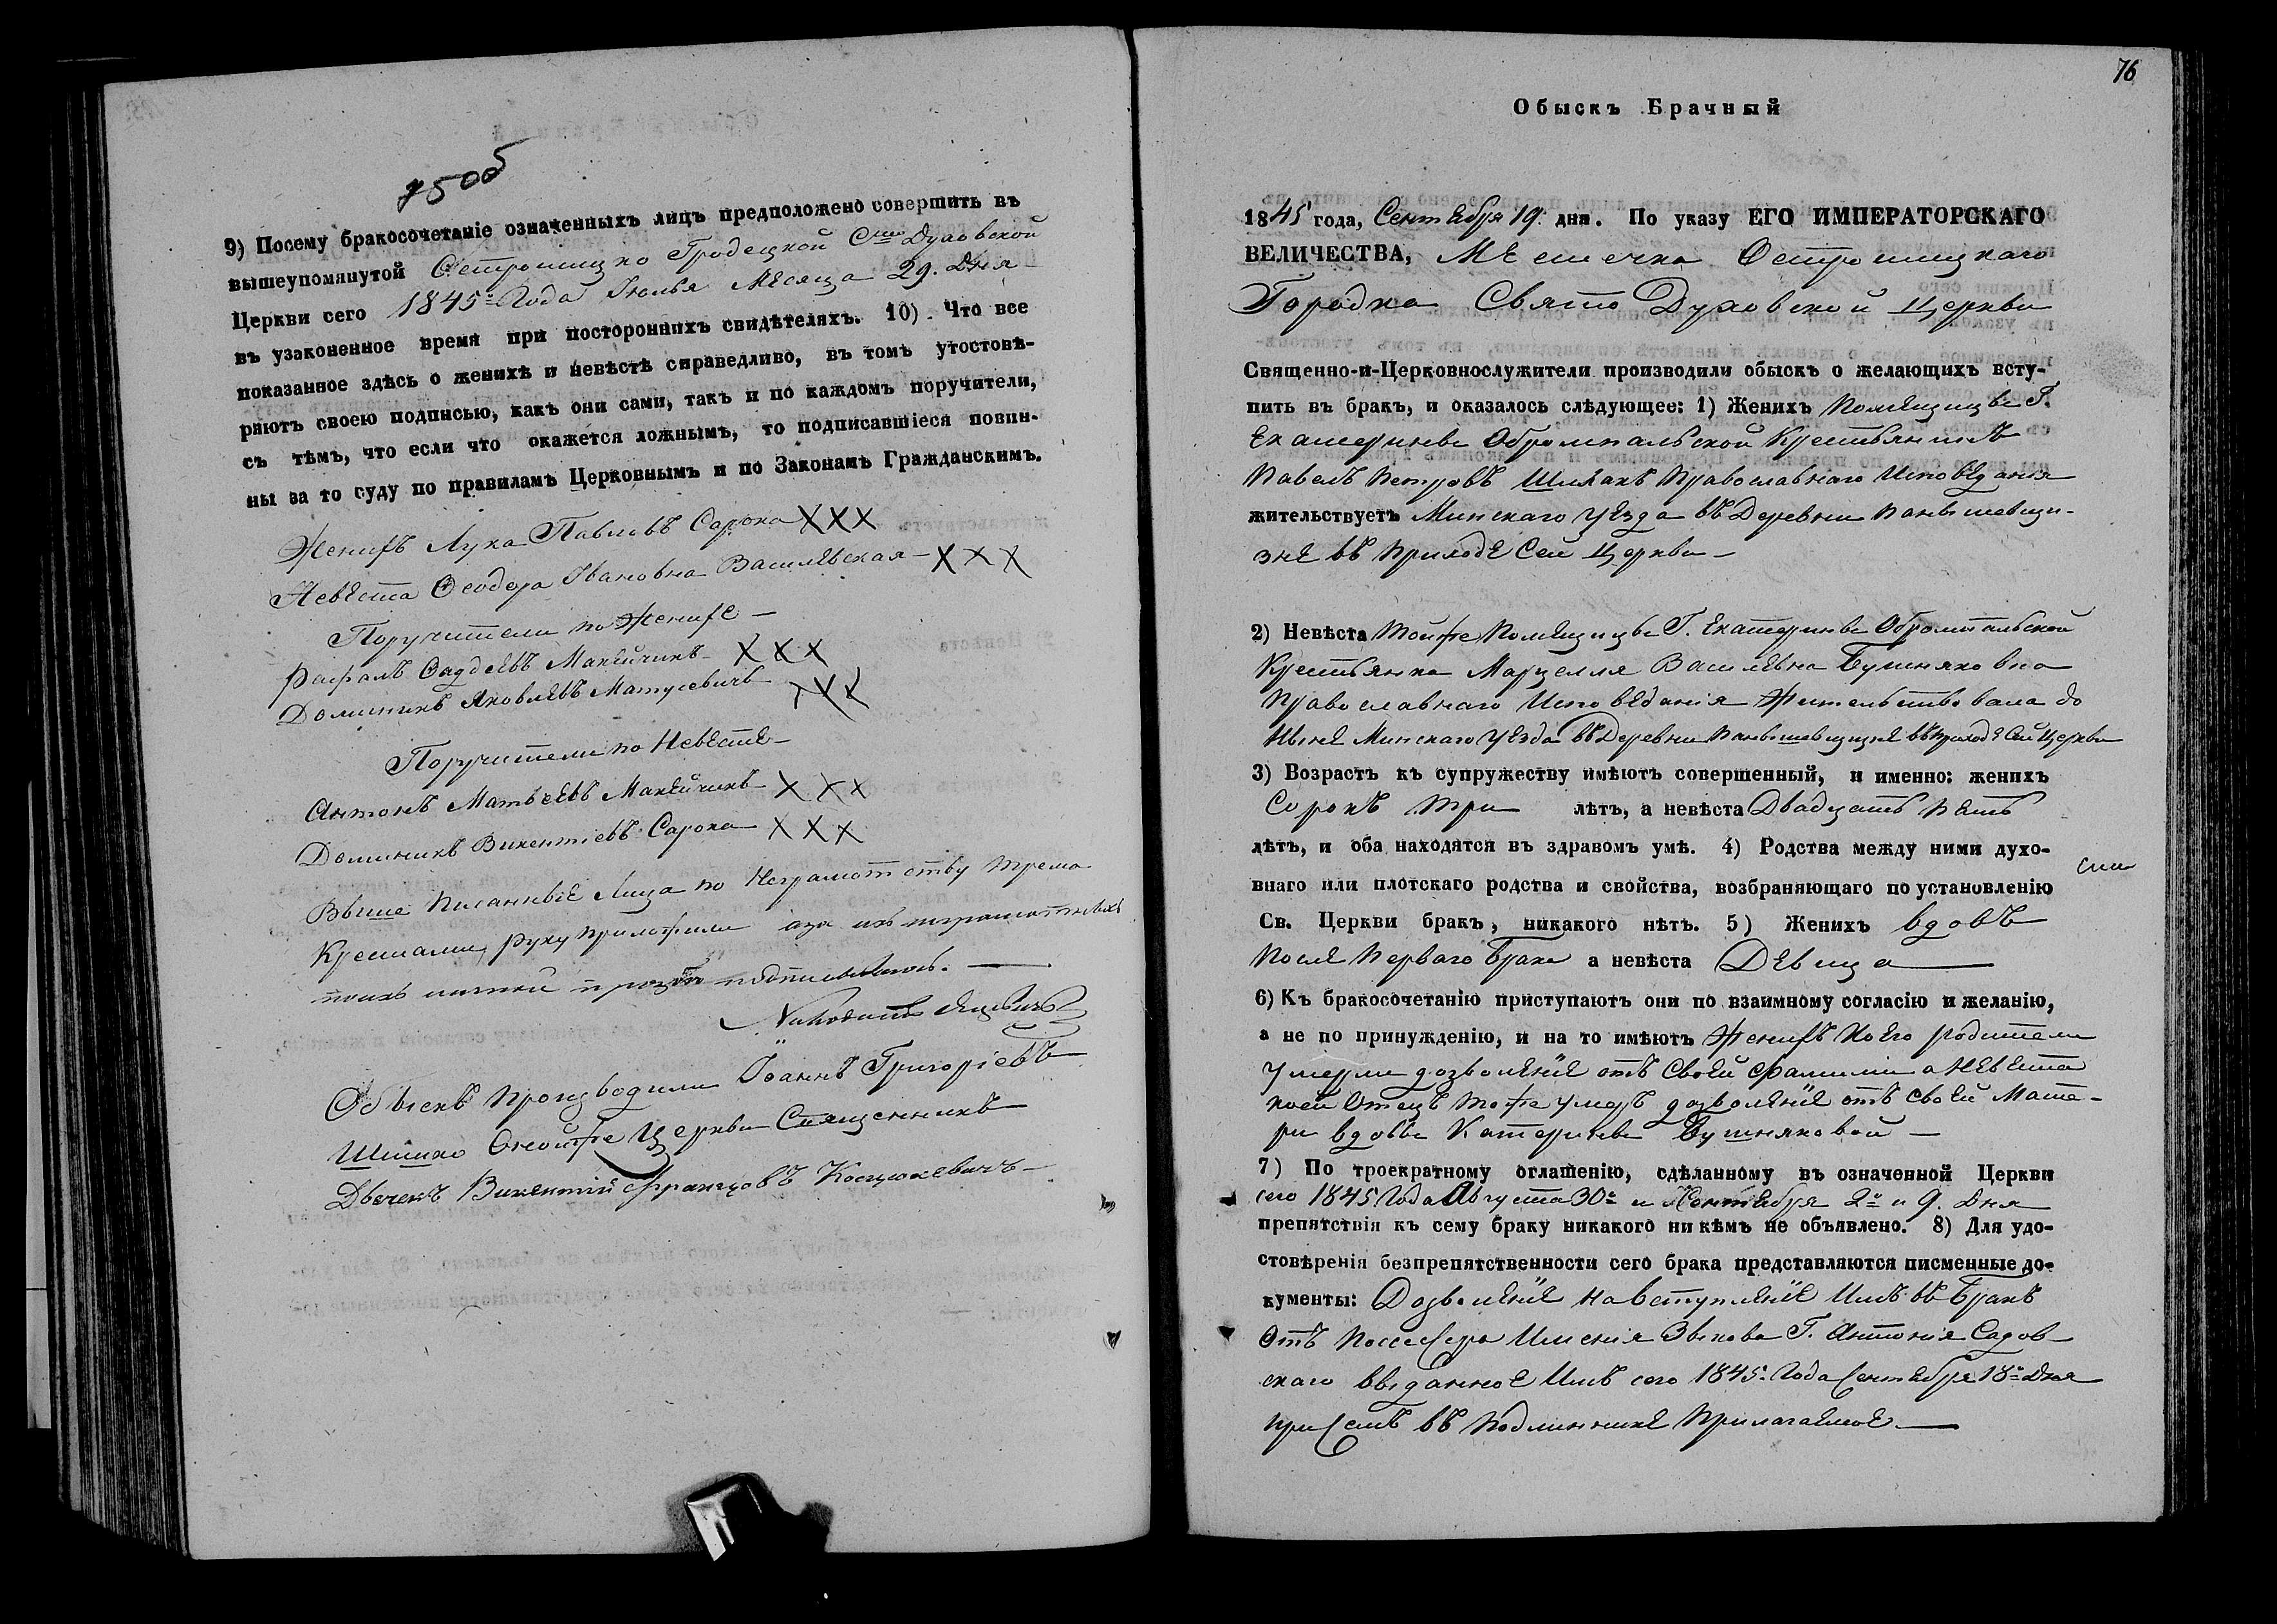 75 об
9) Посему бракосочетаніе означенныхъ лицъ предположено совершить въ
вышеупомянутой Остромицко Гродецкой Сто Духовской
Церкви сего 1845 Года Іюлья Мѣсяца 29. Дня
въ узаконенное время при постороннихъ свидѣтеляхъ. 10). Что все
показанное здѣсь о женихѣ и невѣстѣ справедливо, въ томъ утостовѣ-
ряютъ своею подписью, какъ они сами, такъ и по каждомъ поручители,
съ тѣмъ, что если что окажется ложнымъ, то подписавшіеся повин-
ны за то суду по правиламъ Церковнымъ и по Законамъ Гражданскимъ.
Женихъ Лука Павловъ Сарока XXX
Невѣста Ѳеодора Ивановна Василевская - XXX
Поручители по Женихе -
Рафалъ Ѳадеевъ Макейчикъ XXX
Доминикъ Яковлевъ Матусевичъ XXX
Поручители по Невѣсте -
Антонъ Матвеевъ Макейчикъ XXX
Доминикъ Викентіевъ Сарока XXX
Выше Писанные Лица по Неграмотству трема
Крестами, руку приложили а за ихъ неграмотныхъ
подписался. —
Обыскъ производили Іоаннъ Григоріевъ
Шишко Онойже Церкви Священникъ
Дьячекъ Викентій Францовъ Косцюкевичъ -
76
Обыскъ Брачный
1845 года, Сентября 19. дня. По указу ЕГО ИМПЕРАТОРСКАГО
ВЕЛИЧЕСТВА, Мѣстечка Остромицкаго
Городка Свято Духовской Церкви
Священно-и-Церковнослужители производили обыскъ о желающихъ всту-
пить въ бракъ, и оказалось слѣдующее: 1) Женихъ Помѣщицы Г.
Екатерины Обромпальской Крестьянинъ
Павелъ Петровъ Шляхъ Православнаго Исповѣданія
жительствуетъ Минскаго Уезда въ Деревни Паньшевщи-
зне въ приходе Сей Церкви -
2) Невѣста тойже Помѣщицы Г. Екатерины Обромпальской
Крестьянка Марцелля Василевна Бушняковна
Православнаго Исповѣданія Жительствовала до
Ныне Минскаго Уезда въ Деревни Паньшевщизне въ приходе Сей Церкви
3) Возрастъ къ супружеству имѣютъ совершенный, и именно: женихъ
Сорокъ три лѣтъ, а невѣста Двадцать пять
лѣтъ, и оба находятся въ здравомъ умѣ. 4) Родства между ними духо-
внаго или плотскаго родства и свойства, возбраняющаго по установленію
Св. Церкви бракъ, никакого нѣтъ. 5) Женихъ вдовъ
После Перваго Брака а невѣста Девица
6) Къ бракосочетанію приступаютъ они по взаимному согласію и желанію,
а не по принужденію, и на то имѣютъ Женихъ Коего родители
умерли дозволеніе отъ Своей Фамилии а Невѣста
коей Отецъ тоже умеръ дозволеніе отъ своей Мате-
ри вдовы Катерины Бушняковой —
7) По троекратному оглашенію, сдѣланному въ означенной Церкви
сего 1845 Года Августа 30 и Сентября 2 и 9. Дня
препятствія къ сему браку никакого ни кѣмъ не объявлено. 8) Для удо-
стовѣренія безпрепятственности сего брака представляются писменные до-
кументы: Дозволеніе на Вступленіе Имъ въ Бракъ
Отъ Поссесера Имѣнія Звикова Г. Антонія Садов-
скаго выданное Имъ сего 1845. Года Сентября 18 Дня
при Семъ въ подлиннике прилагаемое.—